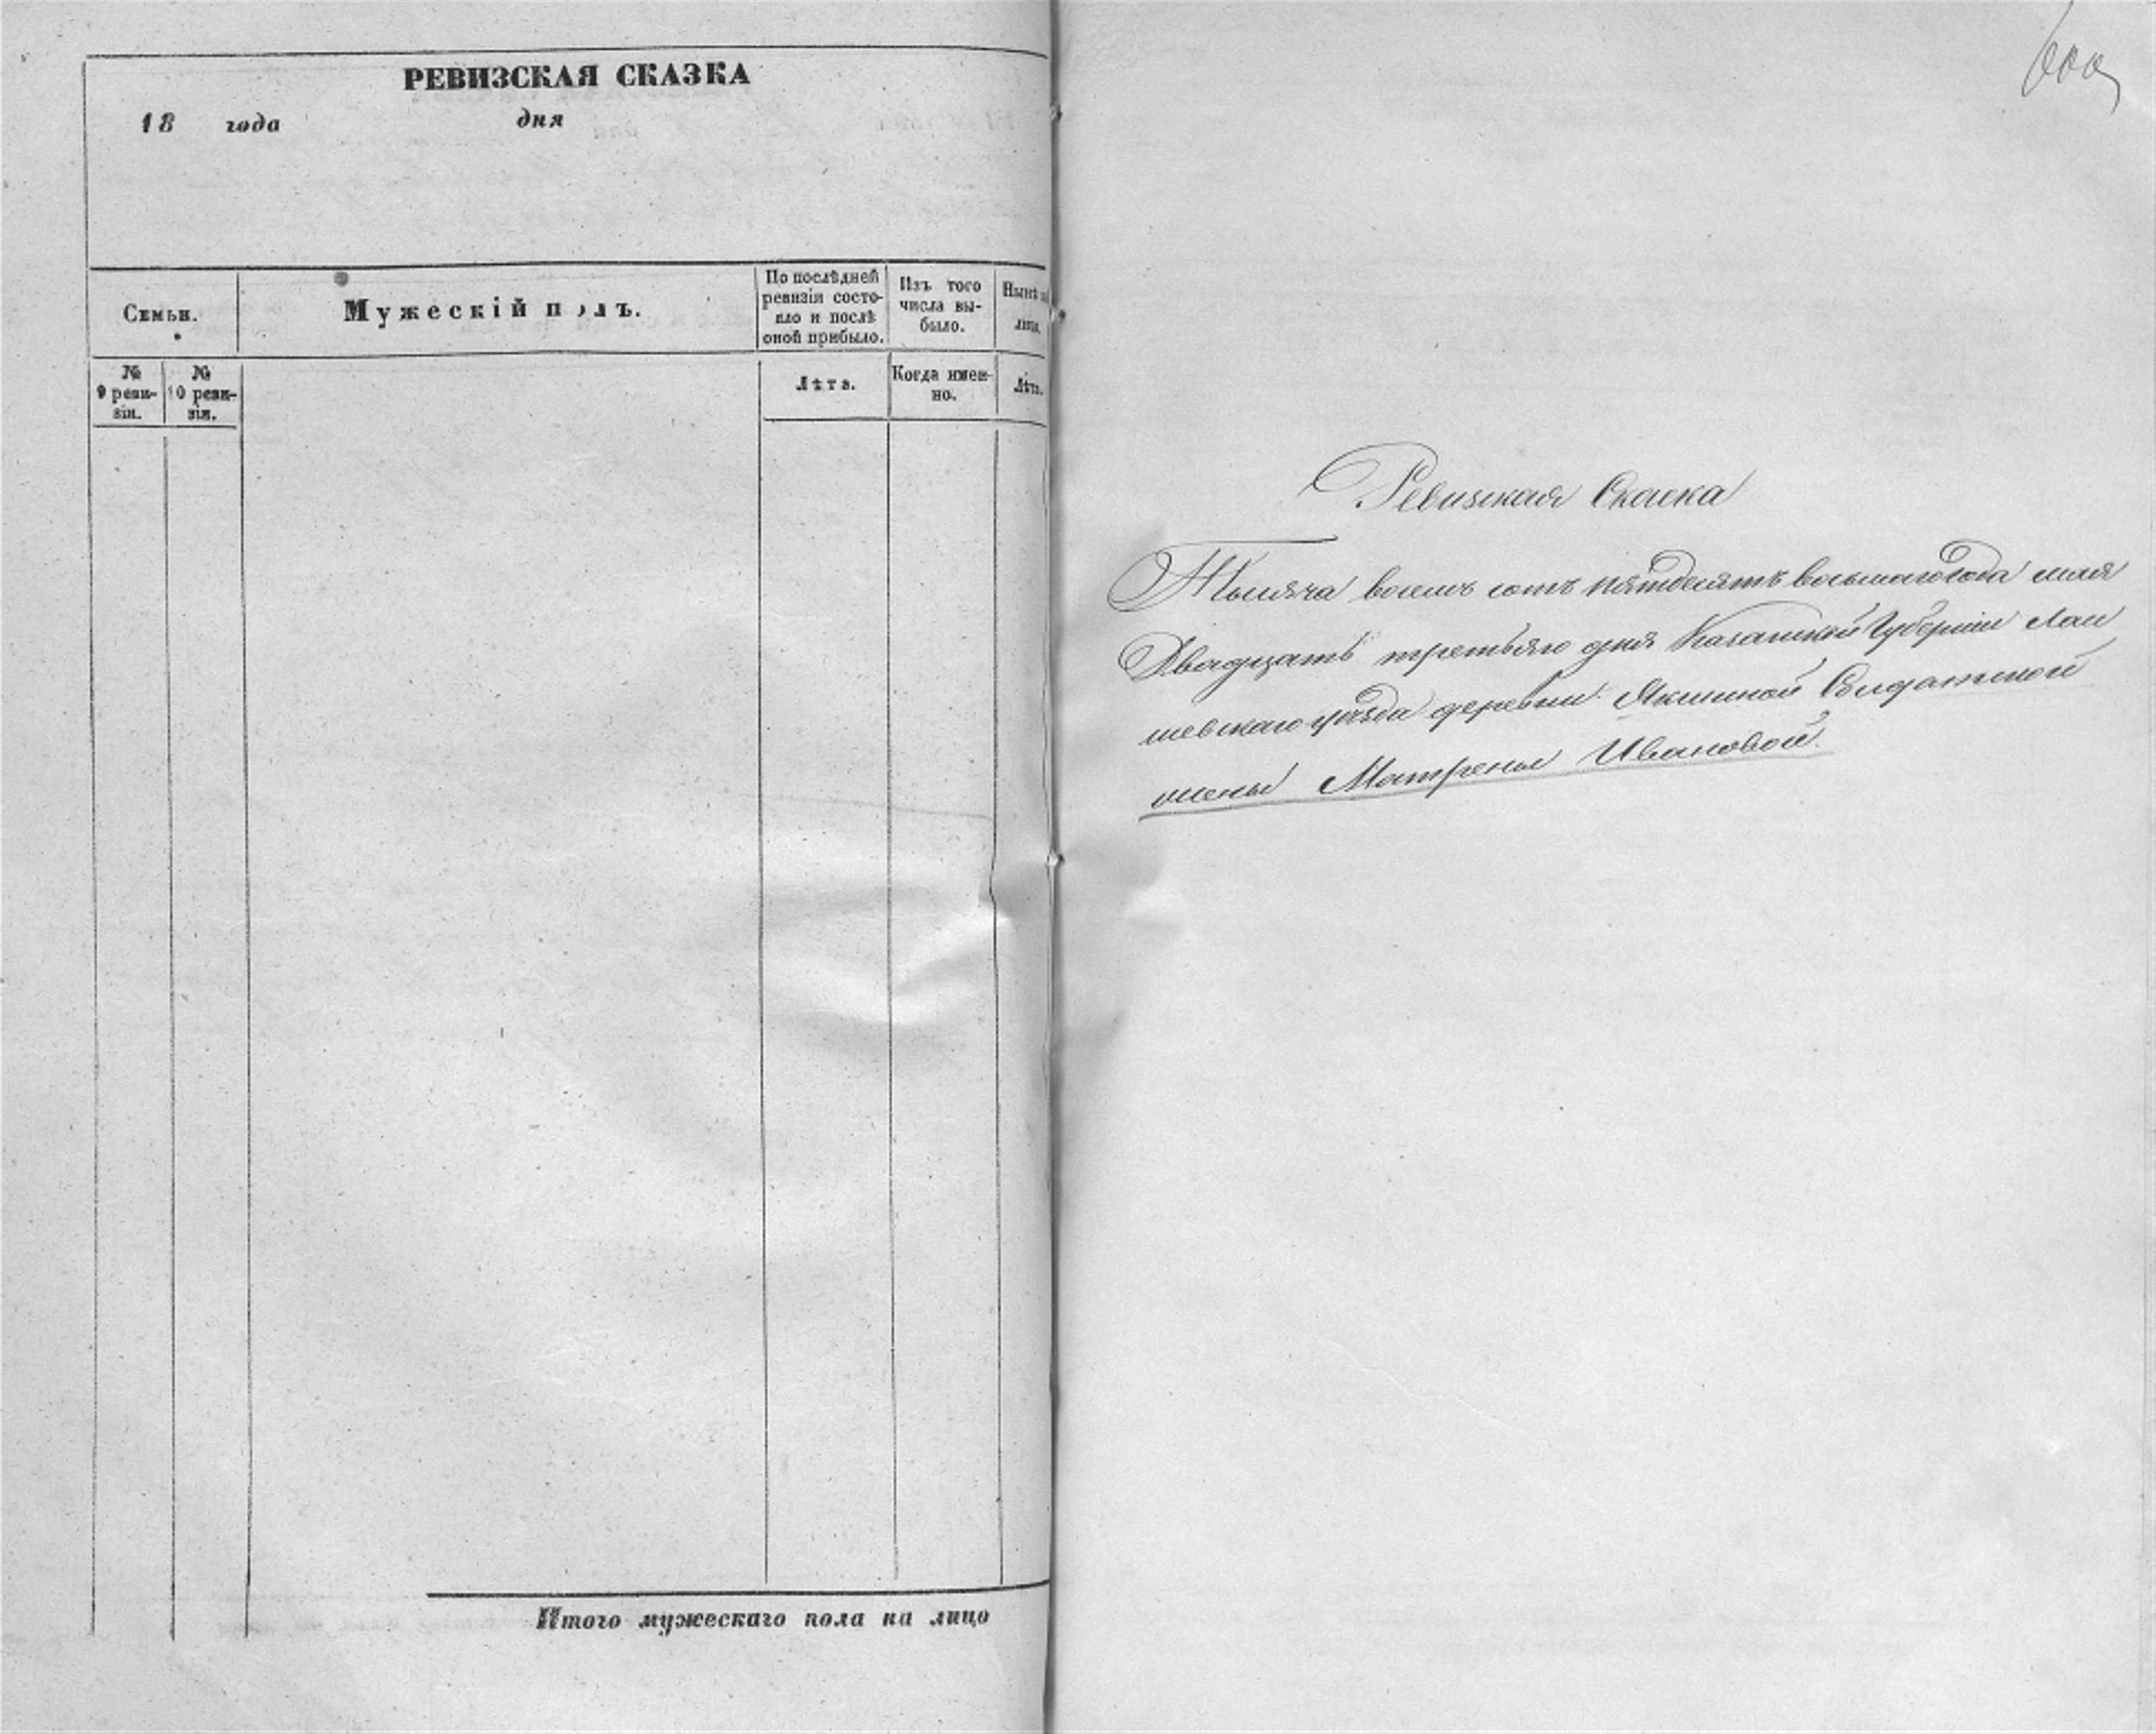 РЕВИЗСКАЯ СКАЗКА
18 года дня
Семьи.
Мужескій полъ.
По послѣдней
ревизіи состо-
яло и послѣ
оной прибыло.
Изъ того
числа вы-
было.
Нынѣ на
лицо.
№
9 реви-
зіи.
№
10 реви-
зіи.
Лѣта.
Когда имен-
но.
Лѣта.
Итого мужескаго пола на лицо
600
Ревизская Скаска
Тысяча восемь сотъ пятдесятъ восьмаго года мая
Двадцать третьяго дня Казанской Губерніи Лаи
шевскаго уѣзда деревни Якшиной Солдатской
жены Матрены Ивановой